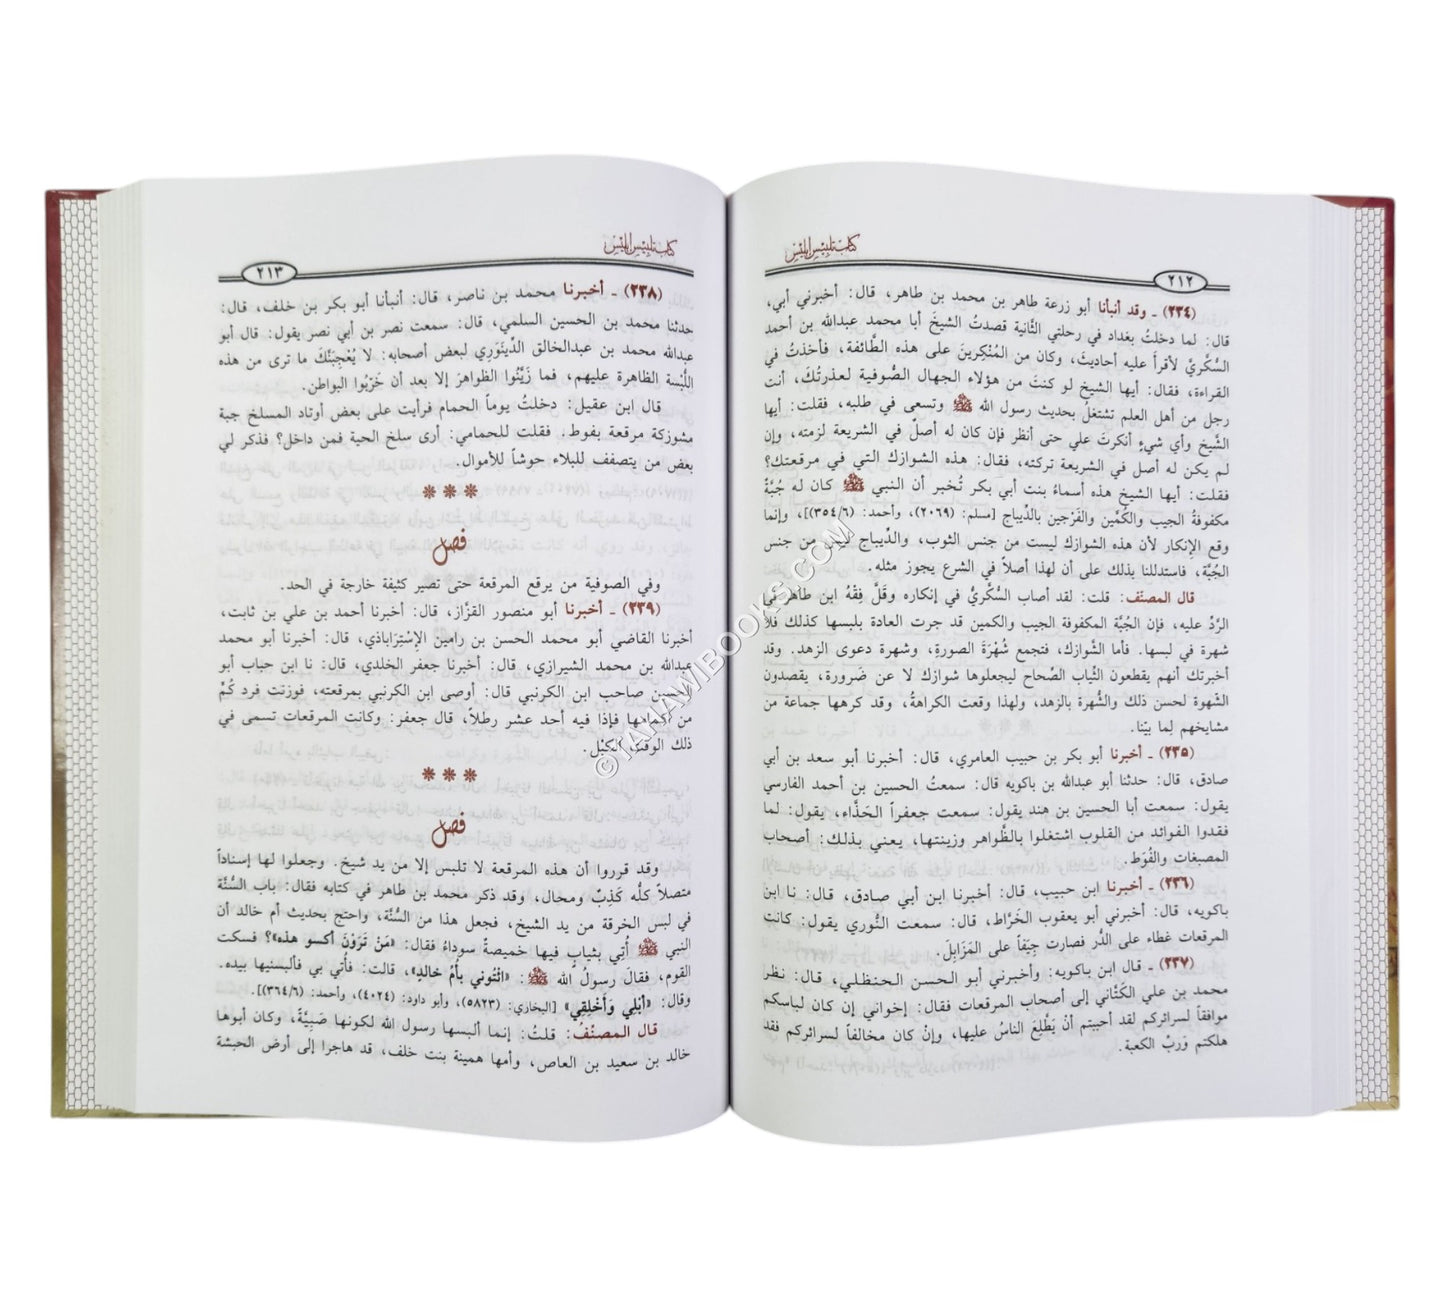 كتاب تلبيس إبليس
٢١٢
(٢٣٤) ـ وقد أنبأنا أبو زرعة طاهر بن محمد بن طاهر، قال: أخبرني أبي،
قال: لما دخلتُ بغداد في رحلتي الثَّانية قصدتُ الشيخَ أبا محمد عبدالله بن أحمد
السُّكَّريَّ لأقرأَ عليه أحاديثَ، وكان من المُنْكِرينَ على هذه الطَّائفة، فأخذتُ في
القراءة، فقال: أيها الشيخ لو كنتَ من هؤلاء الجهال الصُّوفية لعذرتُكَ، أنت
رجل من أهل العلم تشتغلُ بحديث رسول الله ﷺ وتسعى في طلبه، فقلت: أيها
الشَّيخ وأي شيءٍ أنكرتَ علي حتى أنظر فإن كان له أصلٌ في الشريعة لزمته، وإن
لم يكن له أصل في الشريعة تركته، فقال: هذه الشوازك التي في مرقعتك؟
فقلت: أيها الشيخ هذه أسماءُ بنت أبي بكر تُخبر أن النبي ﷺ كان له جُبَّةٌ
مكفوفةُ الجيب والكُمَّين والفَرْجين بالدِّيباج [مسلم: (٢٠٦٩)، وأحمد: (٣٥٤/٦)]، وإنما
وقع الإنكار لأن هذه الشوازك ليست من جنس الثوب، والدِّيباج ليس من جنس
الجُبَّة، فاستدللنا بذلك على أن لهذا أصلاً في الشرع يجوز مثله.
قال المصنّف: قلت: لقد أصاب السُّكَّريُّ في إنكاره وقَلَّ فِقْهُ ابن طاهر في
الرَّدِّ عليه، فإن الجُبَّة المكفوفة الجيب والكمين قد جرت العادة بلبسها كذلك فلا
شهرة في لبسها. فأما الشَّوازك، فتجمع شُهْرَةَ الصورةِ، وشهرة دعوى الزهد. وقد
أخبرتك أنهم يقطعون الثِّياب الصِّحاح ليجعلوها شوازك لا عن ضَرورة، يقصدون
الشَّهوة لحسن ذلك والشُّهرة بالزهد، ولهذا وقعت الكراهةُ، وقد كرهها جماعة من
مشايخهم لِما بيّنا.
(٢٣٥) ـ أخبرنا أبو بكر بن حبيب العامري، قال: أخبرنا أبو سعد بن أبي
صادق، قال: حدثنا أبو عبدالله بن باكويه قال: سمعتُ الحسين بن أحمد الفارسي
يقول: سمعت أبا الحسين بن هند يقول: سمعت جعفراً الحَذَّاء، يقول: لما
فقدوا الفوائد من القلوب اشتغلوا بالظَّواهر وزينتها، يعني بذلك: أصحاب
المصبغات والفُوَط.
(٢٣٦) ـ أخبرنا ابن حبيب، قال: أخبرنا ابن أبي صادق، قال: نا ابن
باكويه، قال: أخبرني أبو يعقوب الخَرَّاط، قال: سمعت النُّوري يقول: كانت
المرقعات غطاء على الدُّر فصارت جِيَفاً على المَزَابِلَ.
(٢٣٧) ـ قال ابن باكويه: وأخبرني أبو الحسن الحنظلي، قال: نظر
محمد بن علي الكَتَّاني إلى أصحاب المرقعات فقال: إخواني إن كان لباسكم
موافقاً لسرائركم لقد أحببتم أنْ يَطَّلِعَ الناسُ عليها، وإنْ كان مخالفاً لسرائركم فقد
هلكتم وَربِّ الكعبة.
كتاب تلبيس إبليس
٢١٣
(٢٣٨) ـ أخبرنا محمد بن ناصر، قال: أنبأنا أبو بكر بن خلف، قال:
حدثنا محمد بن الحسين السلمي، قال: سمعت نصر بن أبي نصر يقول: قال أبو
عبدالله محمد بن عبدالخالق الدِّينَوَرِي لبعض أصحابه: لا يُعْجِبَنَّكَ ما ترى من هذه
اللُّبْسة الظاهرة عليهم، فما زَيَّنُوا الظواهرَ إلا بعد أن خَرَّبُوا البواطن.
قال ابن عقيل: دخلتُ يوماً الحمام فرأيت على بعض أوتاد المسلخ جبة
مشوزكة مرقعة بفوط. فقلت للحمامي: أرى سلخ الحية فمن داخل؟ فذكر لي
بعض من يتصفف للبلاء حوشاً للأموال.
❋ ❋ ❋
فصل
وفي الصوفية من يرقع المرقعة حتى تصير كثيفة خارجة في الحد.
(٢٣٩) ـ أخبرنا أبو منصور القزّاز، قال: أخبرنا أحمد بن علي بن ثابت،
أخبرنا القاضي أبو محمد الحسن بن رامين الإِسْتِرَاباذي، قال: أخبرنا أبو محمد
عبدالله بن محمد الشيرازي، قال: أخبرنا جعفر الخلدي، قال: نا ابن حباب أبو
الحسين صاحب ابن الكرنبي قال: أوصى ابن الكرنبي بمرقعته، فوزنت فرد كُمٍّ
من أكمامها فإذا فيه أحد عشر رطلاً، قال جعفر: وكانت المرقعات تسمى في
ذلك الوقت الكيْل.
❋ ❋ ❋
فصل
وقد قرروا أن هذه المرقعة لا تلبس إلا من يد شيخ. وجعلوا لها إسناداً
متصلاً كلُّه كَذِبٌ ومحال، وقد ذكر محمد بن طاهر في كتابه فقال: باب السُّنَّة
في لبس الخرقة من يد الشيخ، فجعل هذا من السُّنَّة، واحتج بحديث أم خالد أن
النبي ﷺ أُتِي بثيابٍ فيها خميصةٌ سوداءُ فقال: «مَنْ تَرَوْنَ أكسو هذه»؟ فسكت
القوم، فقالَ رسولُ الله ﷺ: «ائْتُوني بأُمِّ خالِدٍ»، قالت: فأُتي بي فألبسنيها بيده.
وقال: «أَبْلِي وَأَخْلِقِي» [البخاري: (٥٨٢٣)، وأبو داود: (٤٠٢٤)، وأحمد: (٣٦٤/٦)].
قال المصنّف: قلتُ: إنما ألبسها رسول الله لكونها صَبِيَّةً، وكان أبوها
خالد بن سعيد بن العاص، وأمها همينة بنت خلف، قد هاجرا إلى أرض الحبشة
©TAHAWIBOOKS.COM